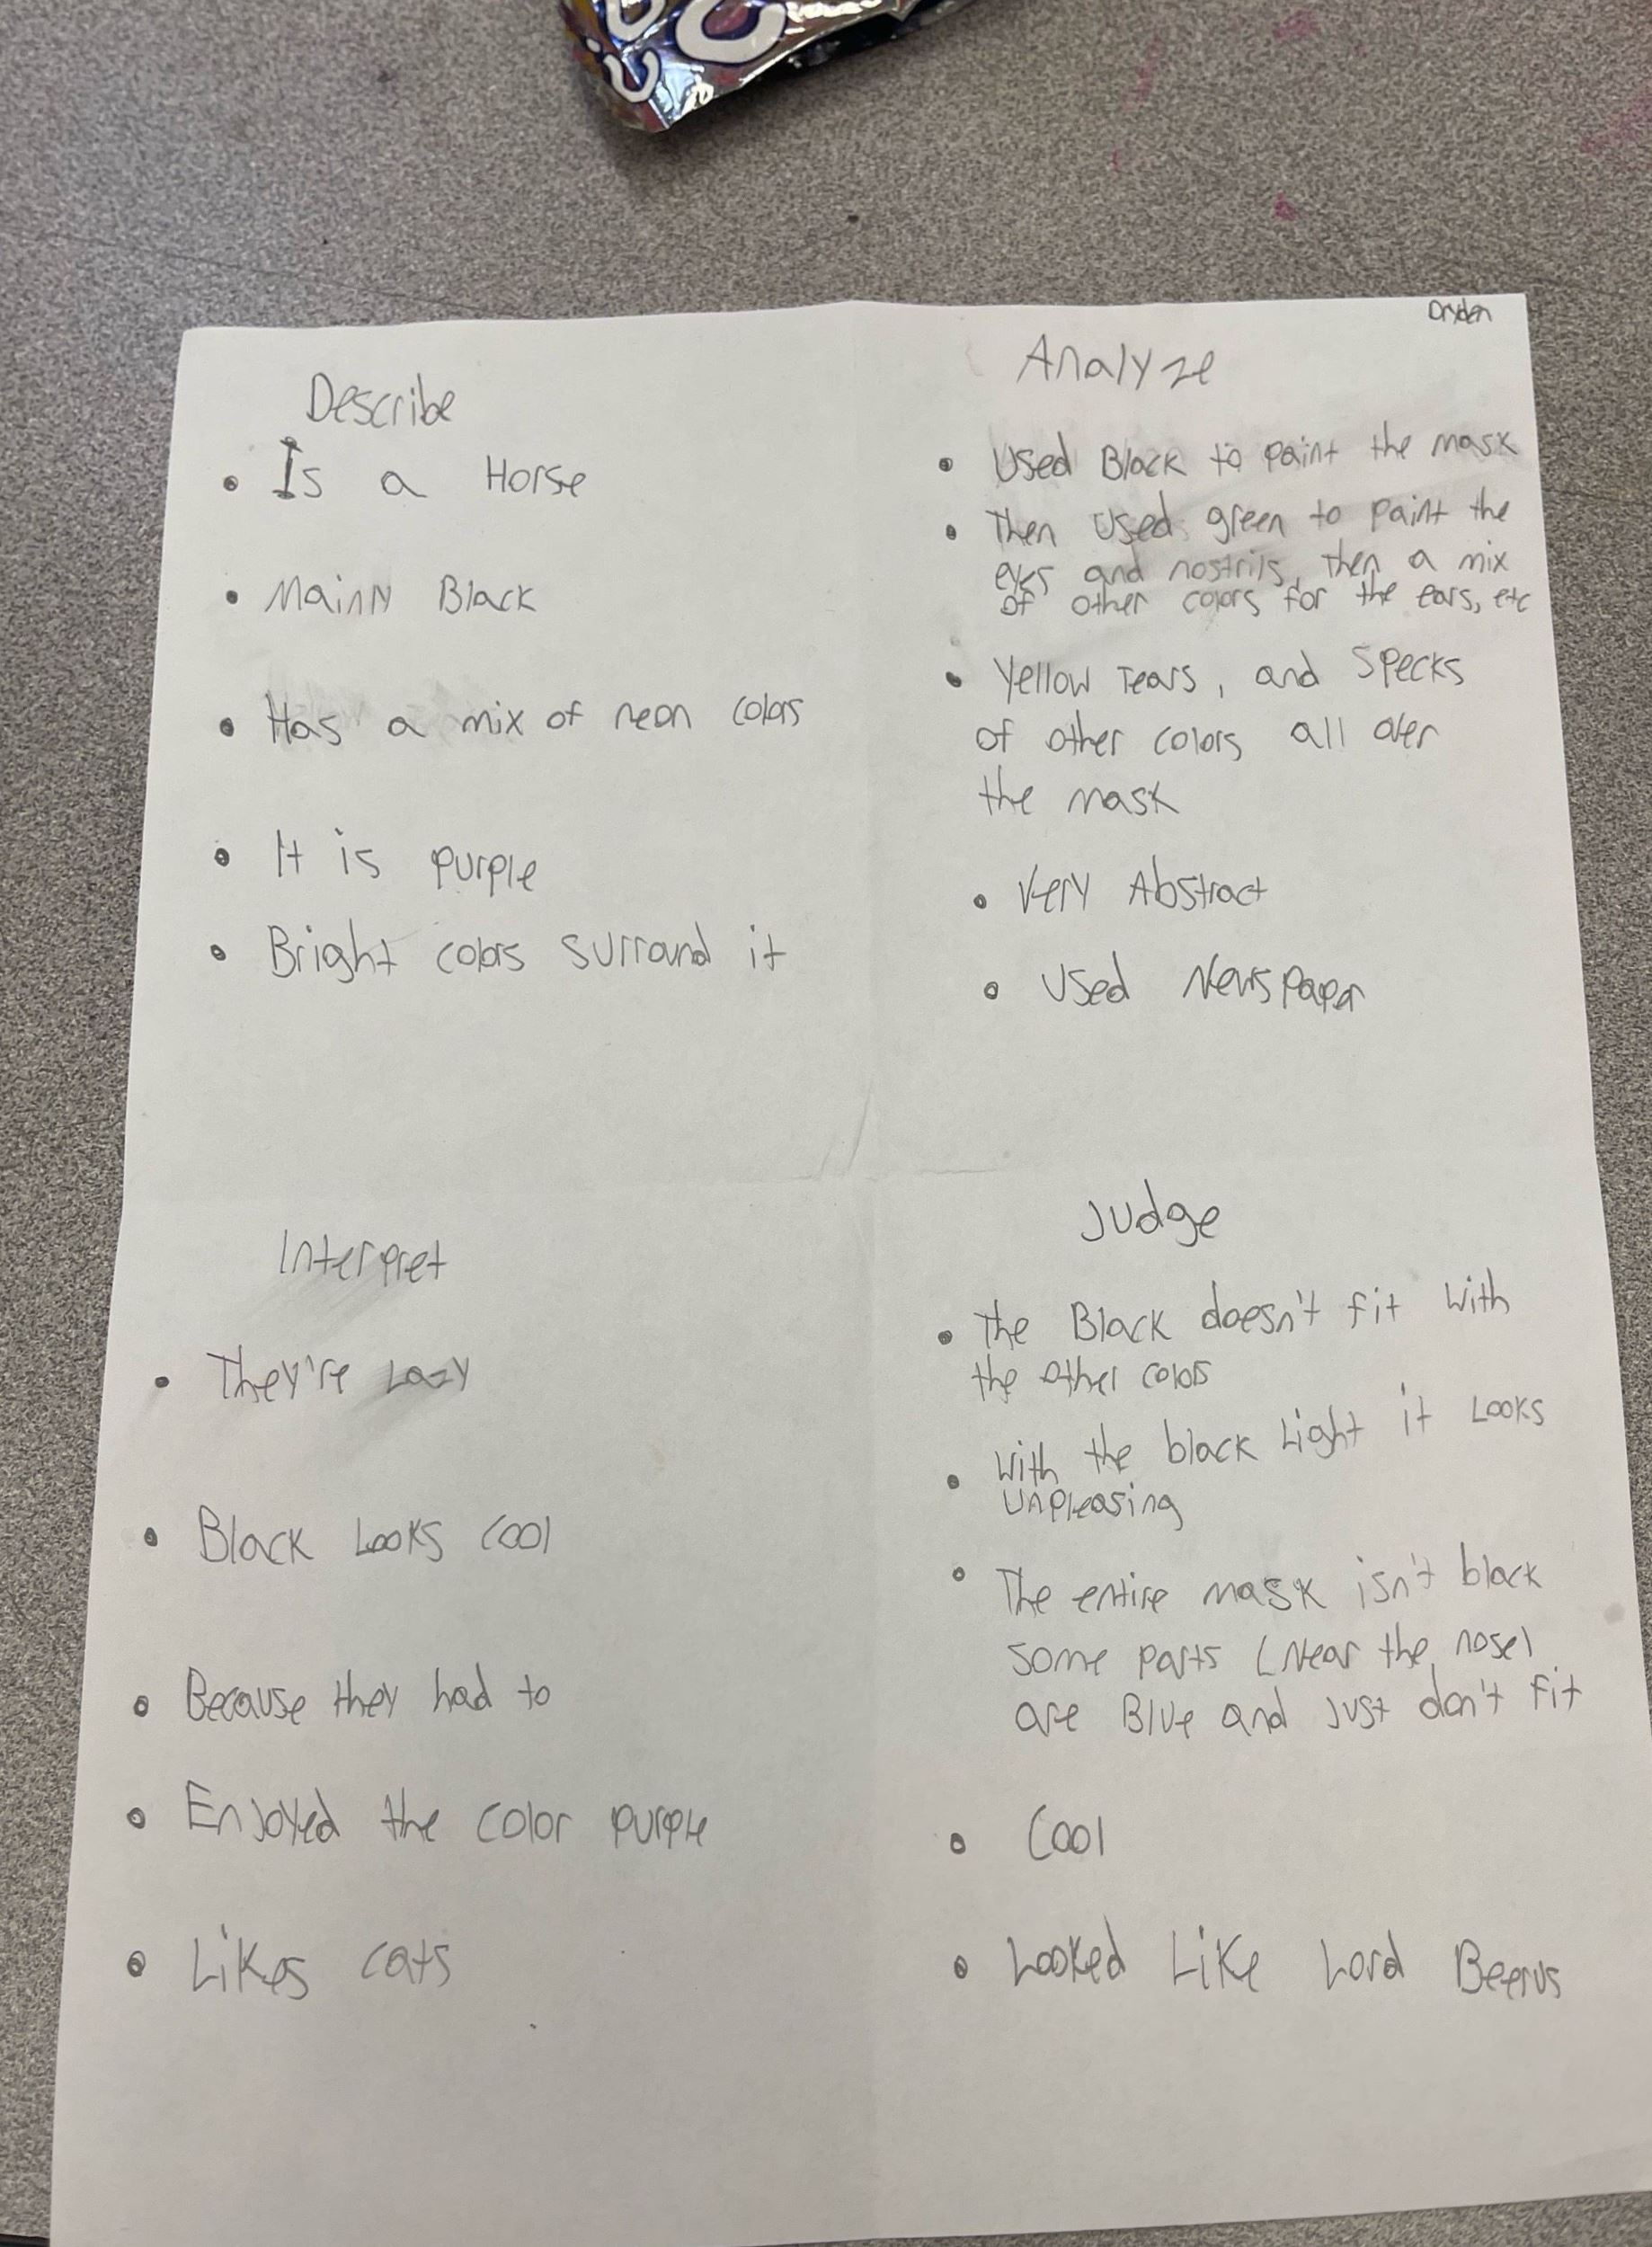 Dryden
Describe
• Is a Horse
• Mainly Black
• Has a mix of neon colors
• It is purple
• Bright colors surround it
Analyze
• Used Black to paint the mask
• Then used green to paint the
eyes and nostrils, then a mix
of other colors for the ears, etc
• Yellow Tears, and Specks
of other colors all over
the mask
• Very Abstract
• Used Newspaper
Interpret
• They're Lazy
• Black Looks Cool
• Because they had to
• Enjoyed the color purple
• Likes cats
Judge
• The Black doesn't fit with
the other colors
• With the black Light it Looks
unpleasing
• The entire mask isn't black
some parts (Near the nose)
are Blue and Just don't fit
• Cool
• Looked Like Lord Beerus